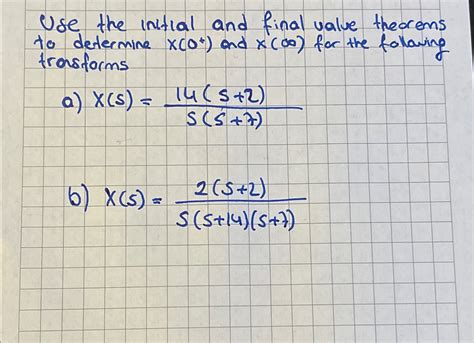 Use the initial and final value theorems
to determine x(0⁺) and x(∞) for the following
trasforms
a) X(s) = 14(s+2) / s(s+7)
b) X(s) = 2(s+2) / s(s+14)(s+7)